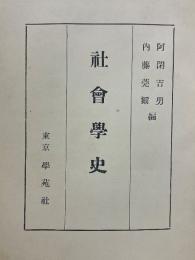 阿閉吉男
内藤莞爾 編
社會學史
東京 學苑社